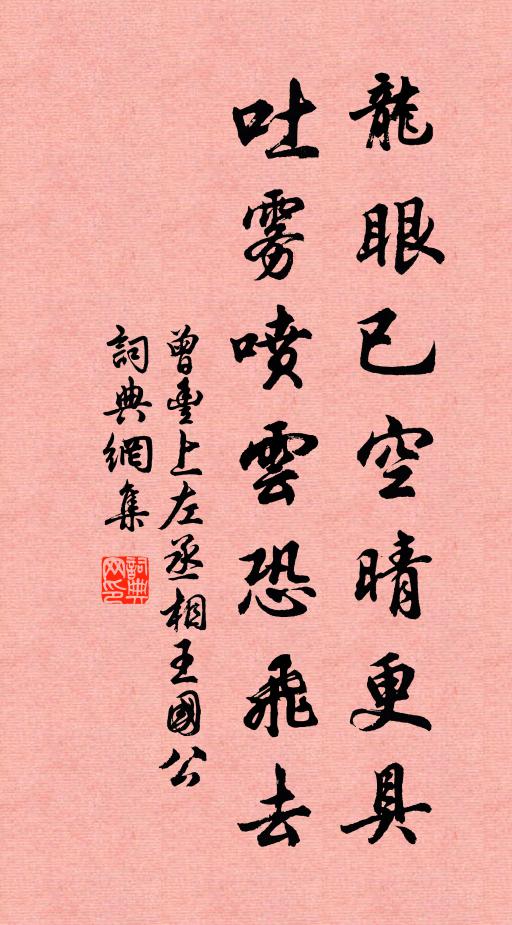 龍眼已空晴更具
吐雾噴雲恐飛去
曾豊上左丞相王國公
詞典網集
詞典网印